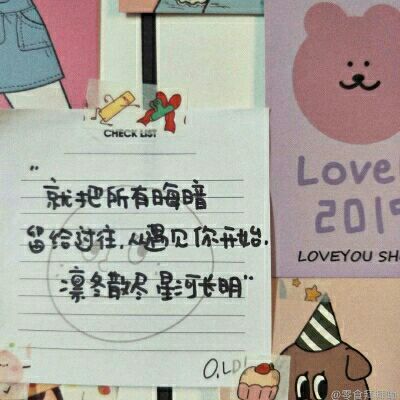 CHECK LIST
"就把所有晦暗
留给过往,从遇见你开始,
凛冬散尽 星河长明"
Love
2019
LOVEYOU SH